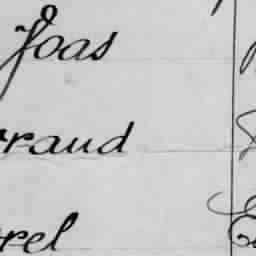 Joas
rraud
rel